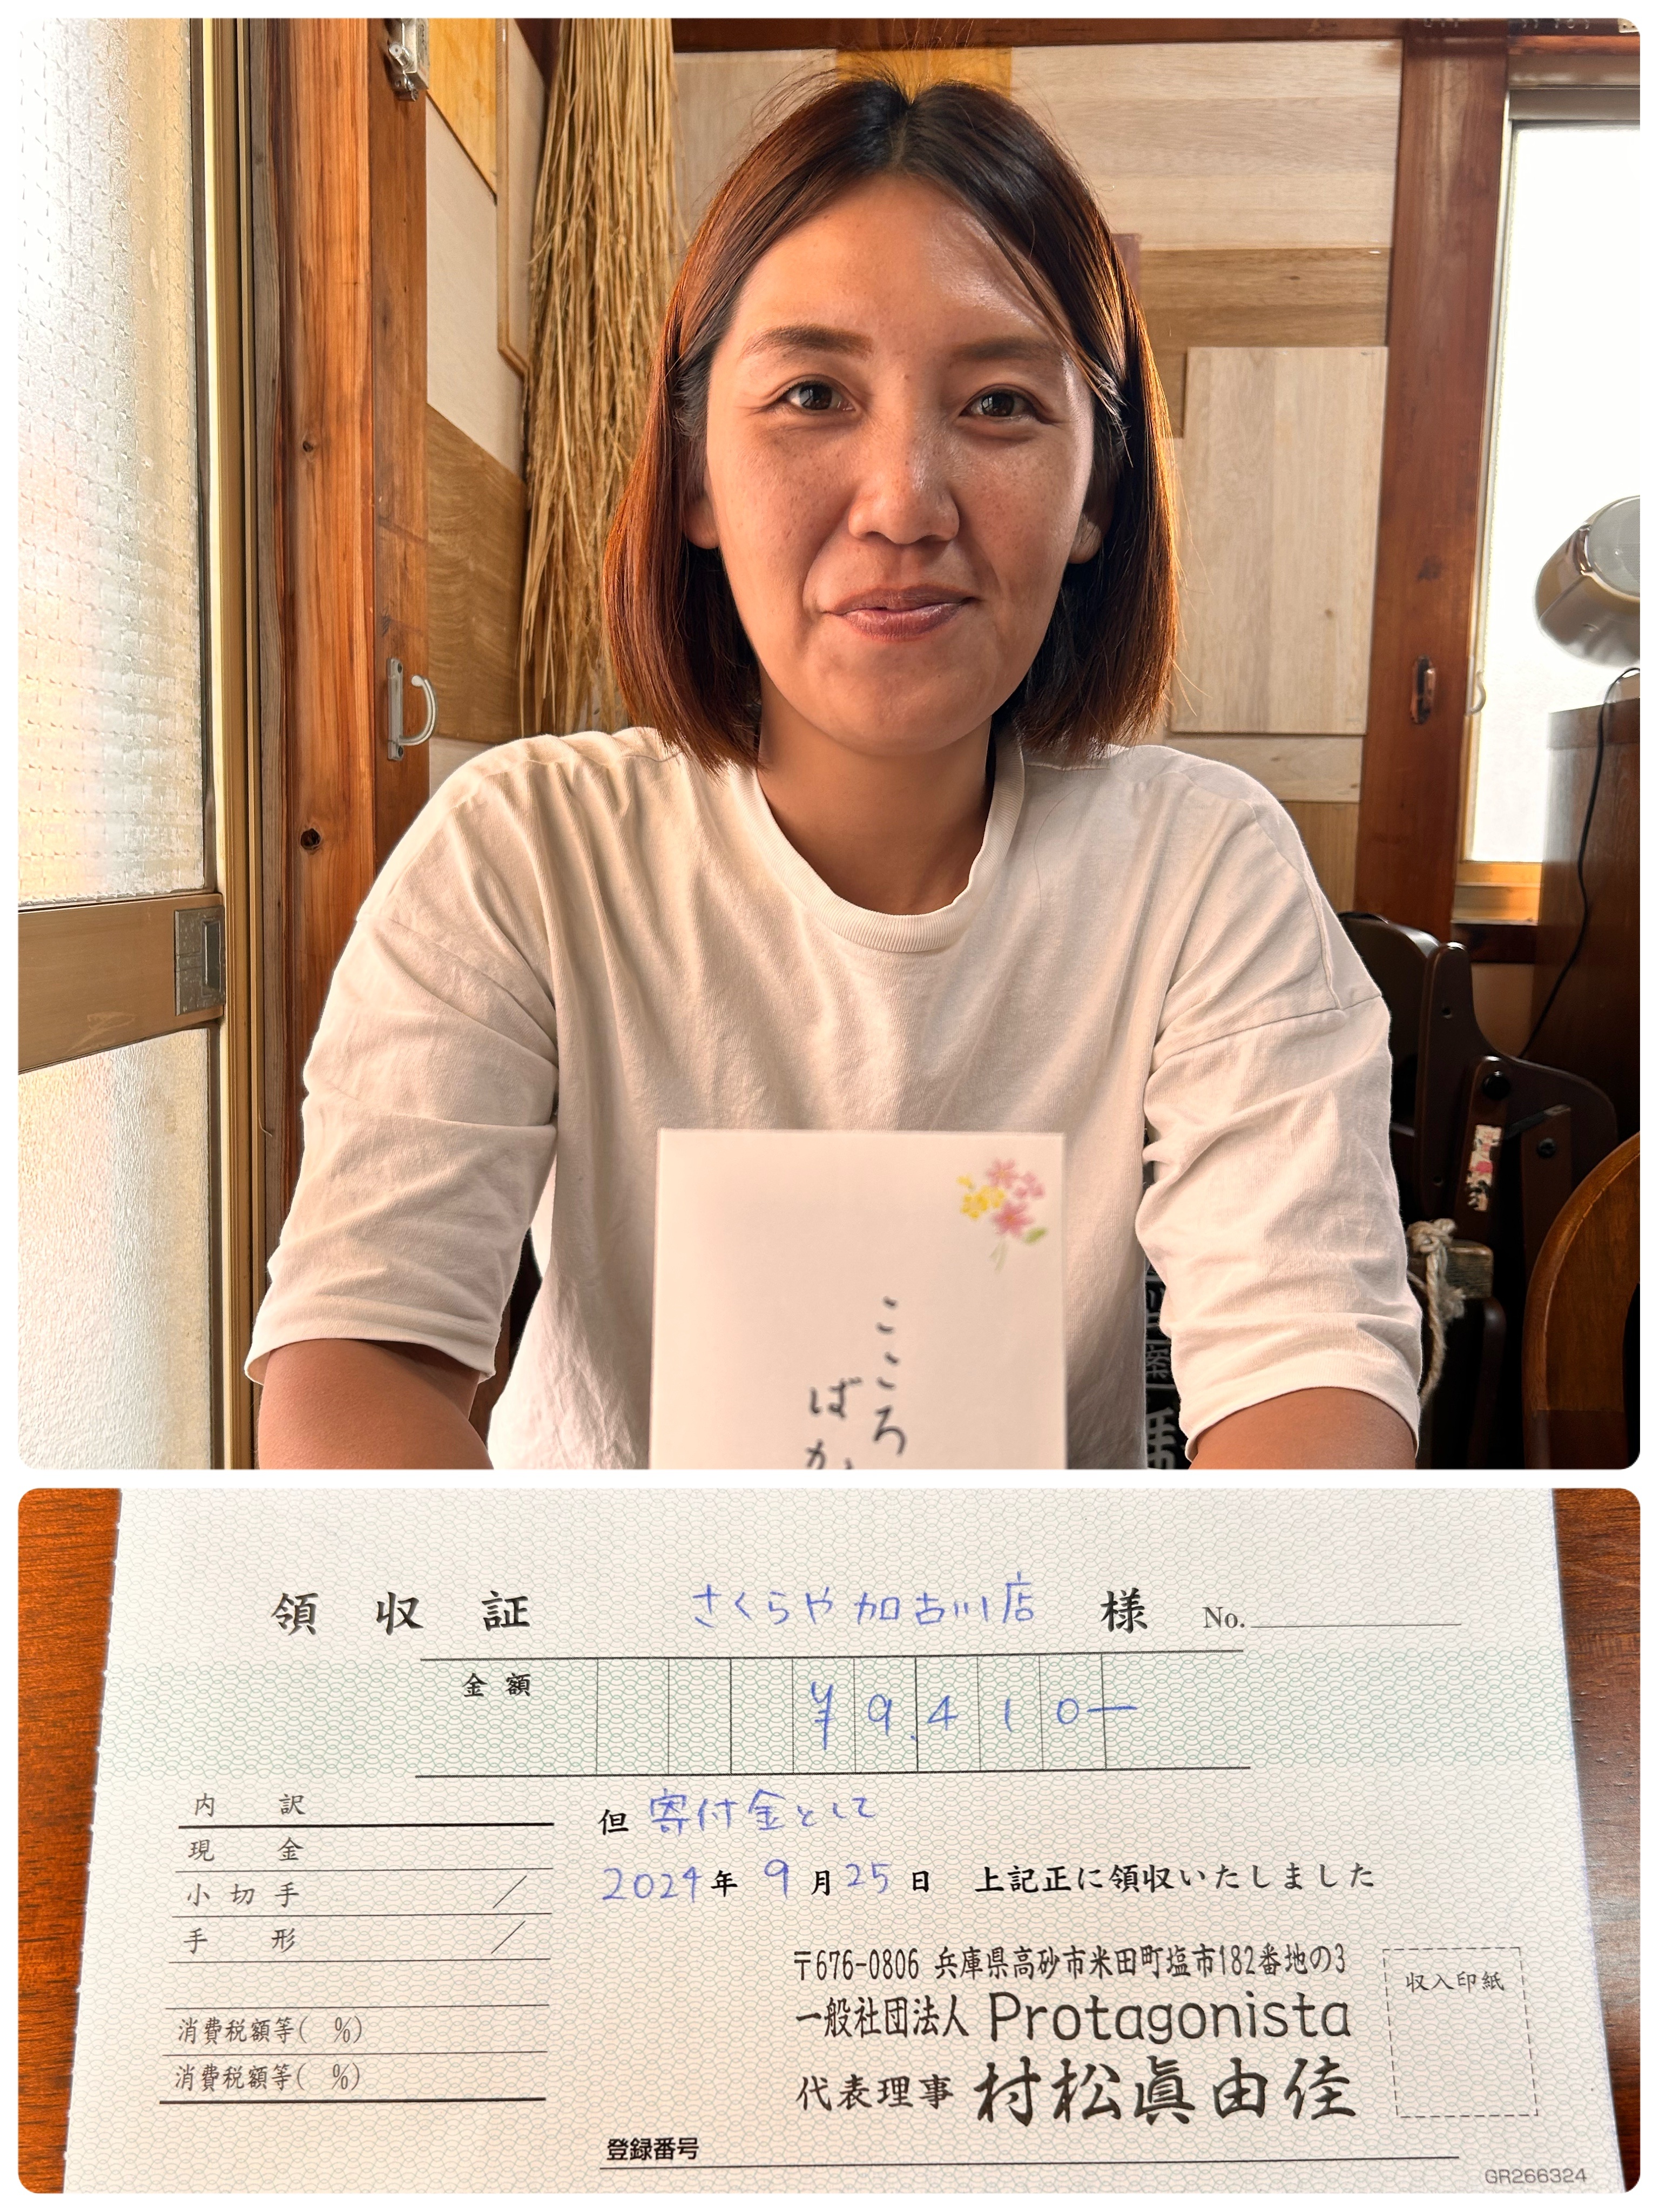 こころ
ばか
領収証 さくらや加古川店 様 No.
金額 ¥9,410-
内訳
現金
小切手
手形
消費税額等( %)
消費税額等( %)
但 寄付金として
2024年 9月25日 上記正に領収いたしました
〒676-0806 兵庫県高砂市米田町塩市182番地の3
一般社団法人 Protagonista
代表理事 村松眞由佳
収入印紙
登録番号
GR266324